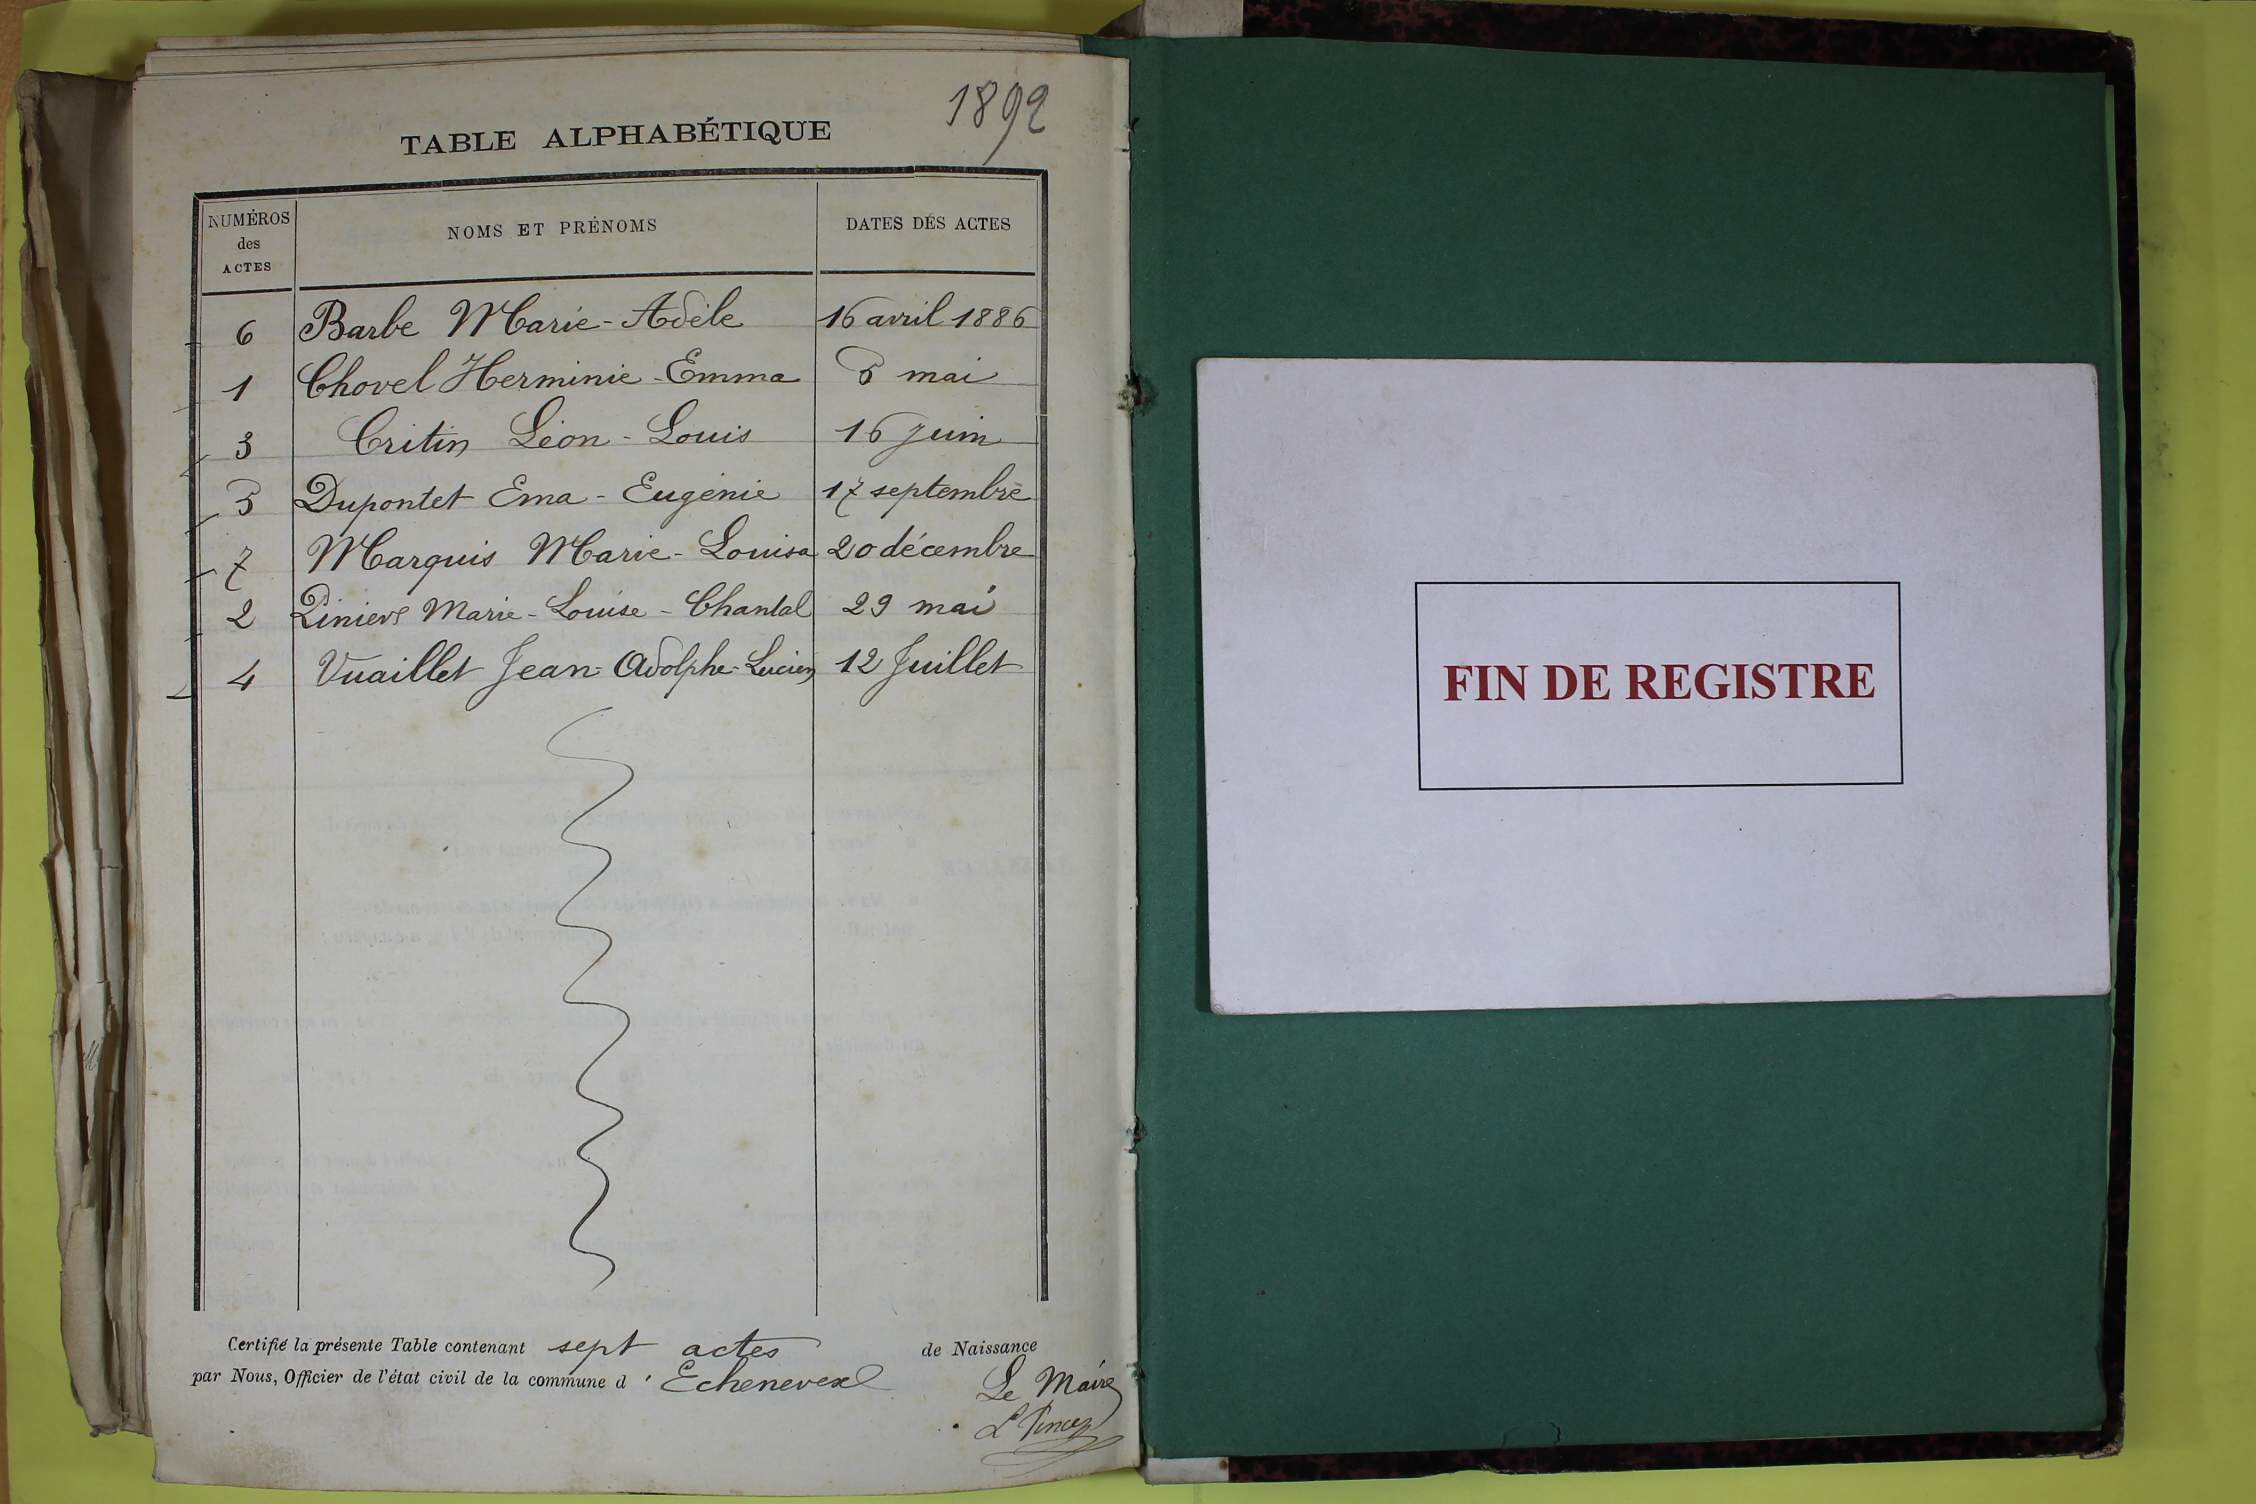 1892
TABLE ALPHABÉTIQUE
NUMÉROS des ACTES NOMS ET PRÉNOMS DATES DES ACTES
6 Barbe Marie-Adèle 16 avril 1886
1 Chovel Herminie-Emma 5 mai
3 Critin Léon-Louis 16 juin
5 Dupontet Ema-Eugénie 17 septembre
7 Marquis Marie-Louisa 20 décembre
2 Marie-Louise-Chantal 29 mai
4 Vuaillet Jean-Adolphe-Lucien 12 Juillet
Certifié la présente Table contenant sept actes de Naissance
par Nous, Officier de l'état civil de la commune d'Echenevex
Le Maire
FIN DE REGISTRE